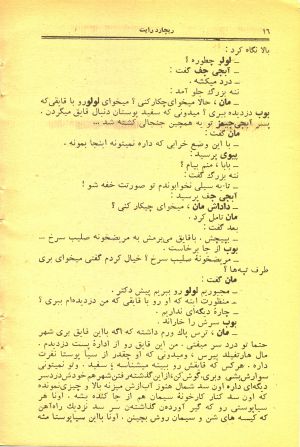 ۱۶
ریچارد رایت
بالا نگاه کرد :
ـ لولو چطوره ؟
ـ آبجی جف گفت :
ـ درد میکشه .
ننه بزرگ جلو آمد :
ـ مان ، حالا میخوای چکارکنی ؟ میخوای لولورو با قایقی‌که
بوب دزدیده ببری ؟ میدونی که سفید پوستان دنبال قایق میگردن .
پسر آبجی‌جیمز تو یه همچین جنجالی کشته شد ...
مان گفت :
ـ با این وضع خرابی که داره نمیتونه اینجا بمونه .
پیوی پرسید :
ـ بابا ، منم بیام ؟
ننه بزرگ گفت :
ـ تا یه سیلی نخوابوندم تو صورتت خفه شو !
آبجی جف پرسید :
ـ داداش مان ، میخوای چیکار کنی ؟
مان تامل کرد .
بعد گفت :
ـ بپیچش . باقایق می‌برمش به مریضخونه صلیب سرخ ...
بوب از جا پرخاست .
ـ مریضخونهٔ صلیب سرخ ؟ خیال کردم گفتی میخوای بری
طرف تپه‌ها ؟
مان گفت :
ـ مجبوریم لولو رو ببریم پیش دکتر .
ـ منظورت اینه که او رو با قایقی که من دزدیده‌ام ببری ؟
ـ چارهٔ دیگه‌ای نداریم .
بوب سرش را خاراند .
ـ مان ، ترس پاک ورم داشته که اگه بااین قایق بری شهر
حتما تو درد سر میفتی . من این قایق رو از ادارهٔ پست دزدیدم .
مال هارتفیلد پیرس ، ومیدونی که او چقدر از سیا پوستا نفرت
داره . هرکس که قایقش رو ببینه میشناسه
دیگه‌ای داره اون سد شمال هنوز آب‌ازش میزنه بالا و چیزی‌نمونده
که اون سد کنار کارخونهٔ سیمان هم از جا کنده بشه . اونا هر
سیاپوستی رو که گیر آوردن گذاشتن سر سد نزدیک راه‌آهن
که کیسه های شن و سیمان روش بچینن . اونا بااین سیاپوستا مثه